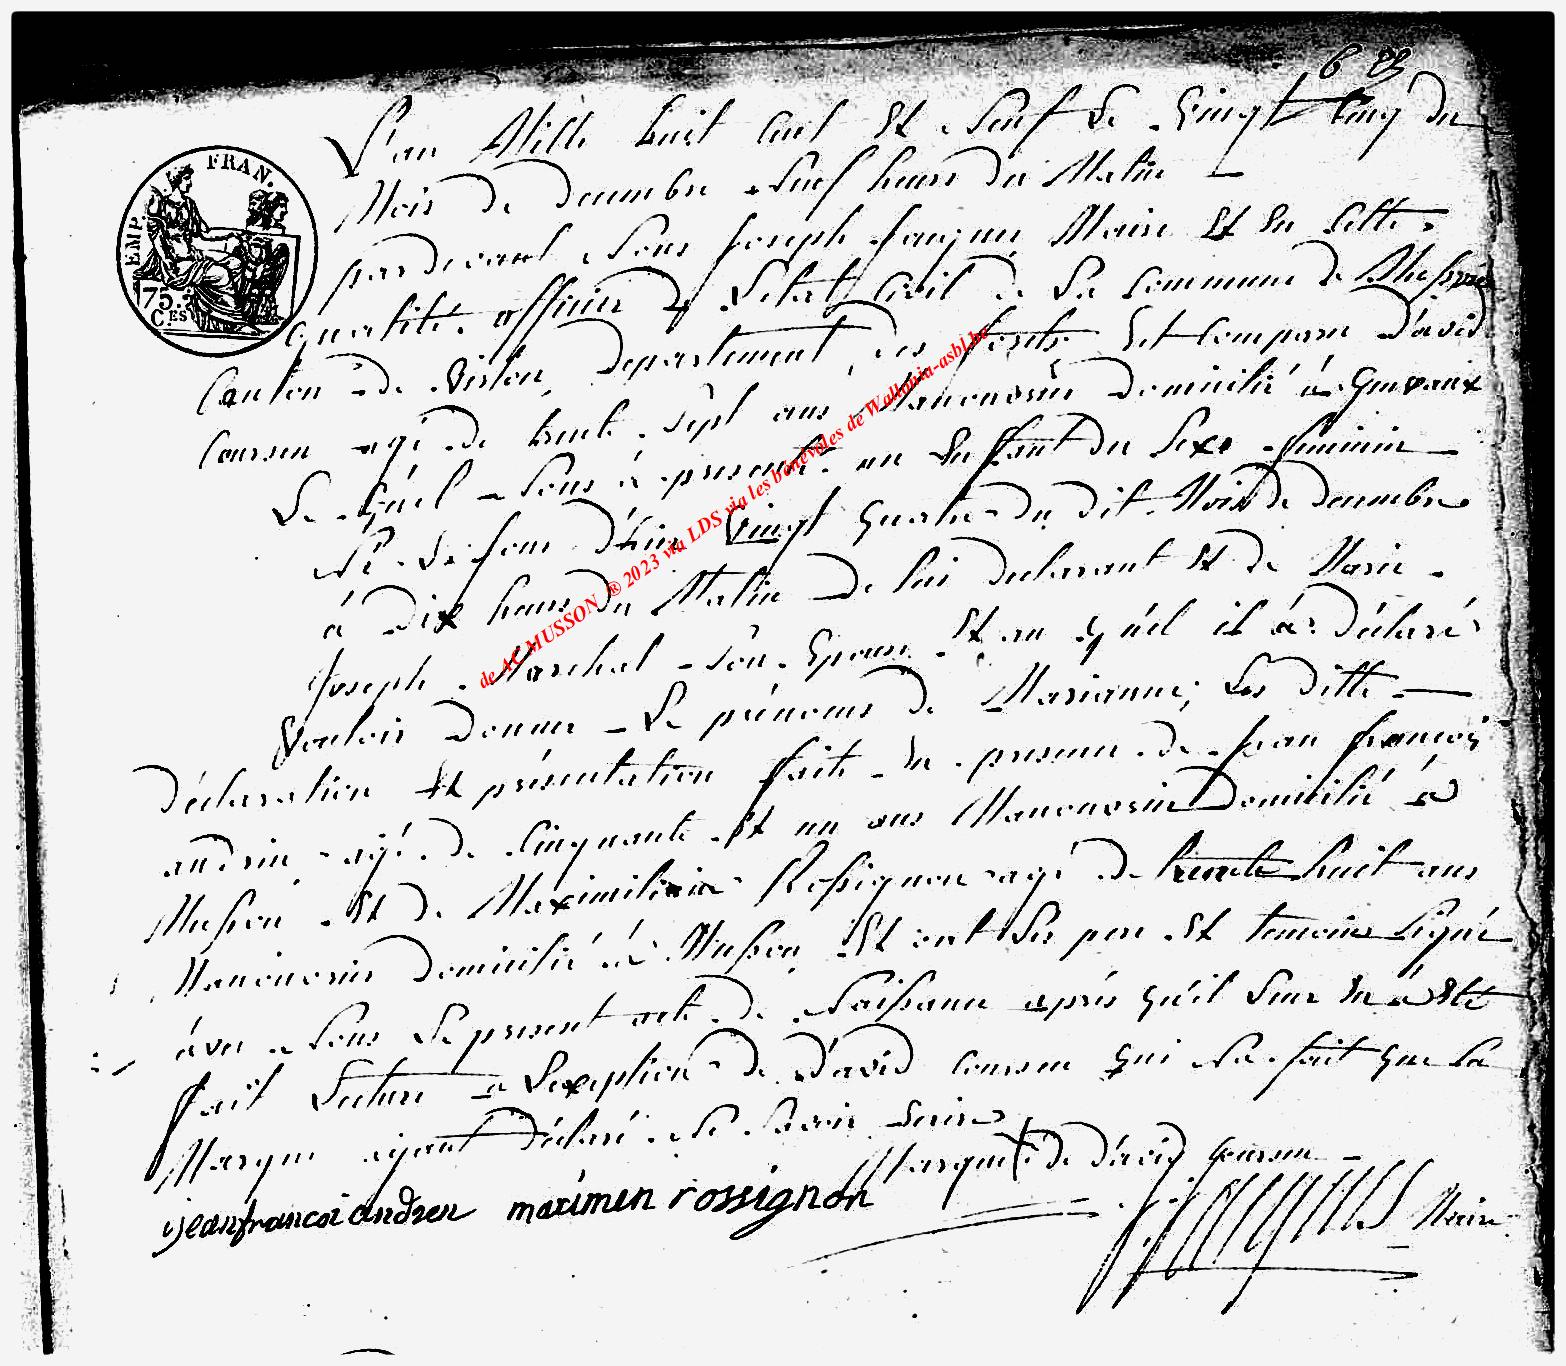 6 23
L'an Mille huit Cent Et Neuf Le Vingt Cinq du
Mois de decembre Neuf heure du Matin
EMP. FRAN.
75. C.ES
pardevant Nous Joseph Maire Et En Cette
qualité officier de L'etat Civil de La Commune de Musson
Canton de Virton, departement des forêts Est Comparu David
Courseu agé de trente Sept ans Manouvrier domicilié à Gvevaux
Le Quel Nous à presenté un Enffant du Sexe feminin
Né Le jour d'hier Vingt quatre du dit Mois de decembre
à Dix heure du Matin de lui declarant Et de Marie
Joseph Marchal Son Epouse Et au quel il à déclaré
Vouloir donner Le prénoms de Marianne, Les ditte
déclaration Et présentation faite En presence de Jean francois
andrin agé de Cinquante Et un ans Manouvrier Domicilié à
Musson Et de Maximiliain Rossignon agé de trente huit ans
Manouvrier domicilié à Musson Et ont Les pere Et temoins Signé
àvec Nous Le present acte de Naissance après qu'il Leur En à Eté
fait Lecture a L'exeption de David Courseu qui Na fait que La
Marque ayant déclaré Ne Savoir Ecrire
Marque de david Courseu
jeanfrancoi andren maximen rossignon
Maire
de AC MUSSON ® 2023 via LDS via les bénévoles de Wallonia-asbl.be